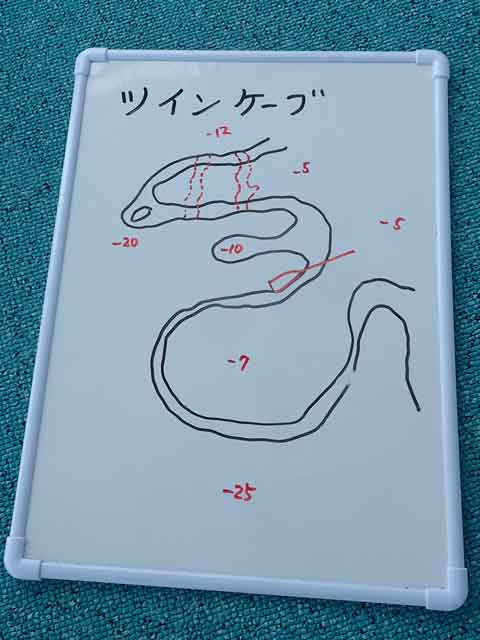 ツインケーブ
-12
-5
-5
-20
-10
-7
-25